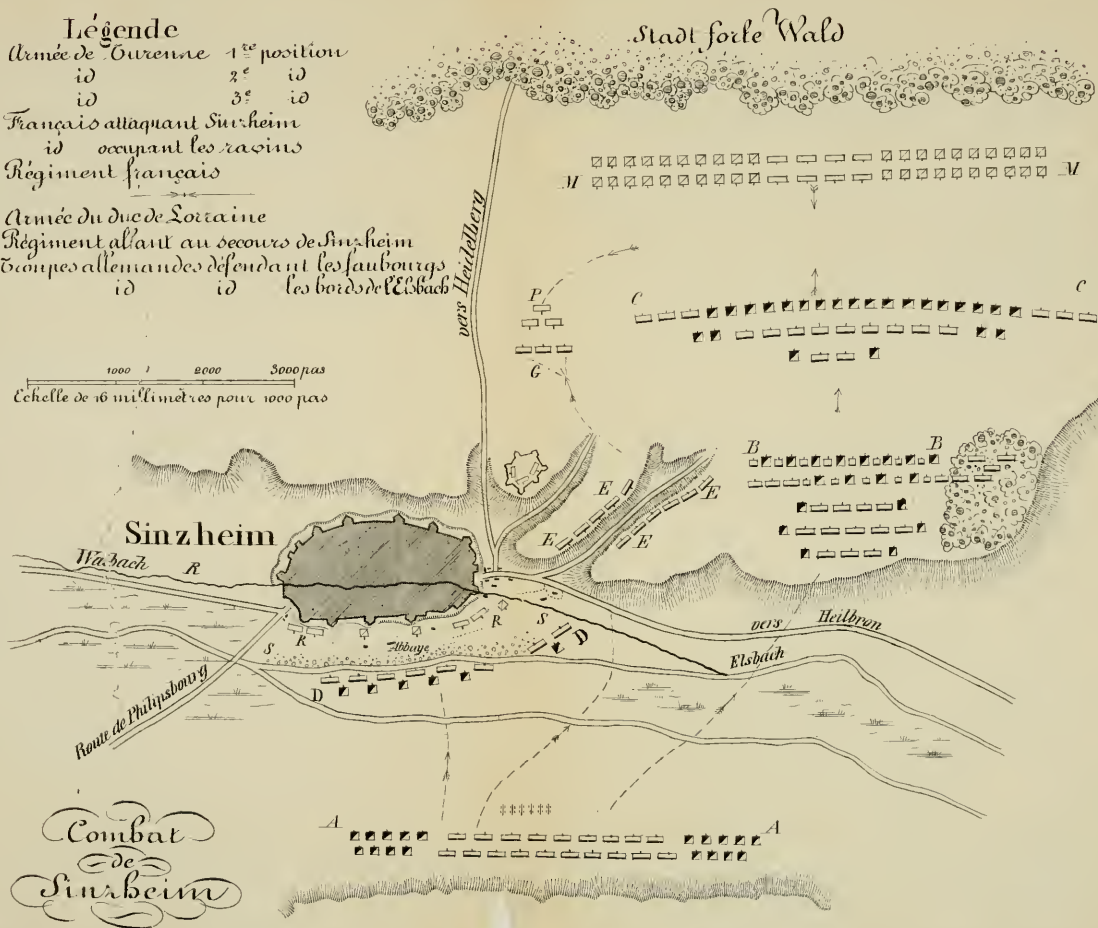 Légende
Armée de Turenne 1re position
id 2e id
id 3e id
Français attaquant Sinzheim
id occupant les ravins
Régiment français
Armée du duc de Lorraine
Régiment allant au secours de Sinzheim
Troupes allemandes défendant les faubourgs
id id les bords de l'Elsbach
1000 2000 3000 pas
Echelle de 16 millimètres pour 1000 pas
Stadt forle Wald
M M
vers Heidelberg
P
C C
G
B B
E E
E E
Sinzheim
Wabach R
S R Abbaye R S D
D
vers Heilbron
Elsbach
Route de Philipsbourg
A A
Combat
de
Sinzheim